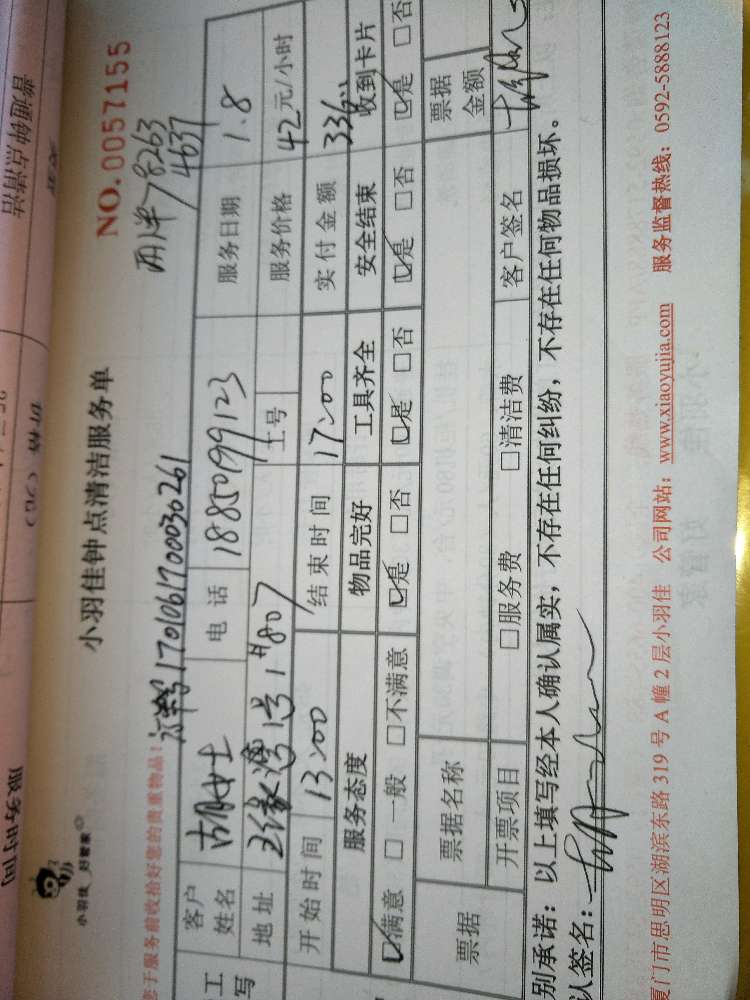 普通钟点清洁
价格(元)
服务时间
小羽佳 好管家
小羽佳钟点清洁服务单
NO.0057155
您于服务前收拾好您的贵重物品!
1701061700030261
8263
4637
客户姓名 胡女士 电话 18850199123 服务日期 1.8
地址 1号 807 工号 服务价格 42元/小时
开始时间 13:00 结束时间 17:00 实付金额 336
服务态度 物品完好 工具齐全 安全结束 收到卡片
☑满意 □一般 □不满意 ☑是 □否 ☑是 □否 ☑是 □否 ☑是 □否
票据 票据名称 票据金额
开票项目 □服务费 □清洁费 客户签名
别承诺:以上填写经本人确认属实,不存在任何纠纷,不存在任何物品损坏。
认签名:
厦门市思明区湖滨东路319号A幢2层小羽佳 公司网站:www.xiaoyujia.com 服务监督热线:0592-5888123